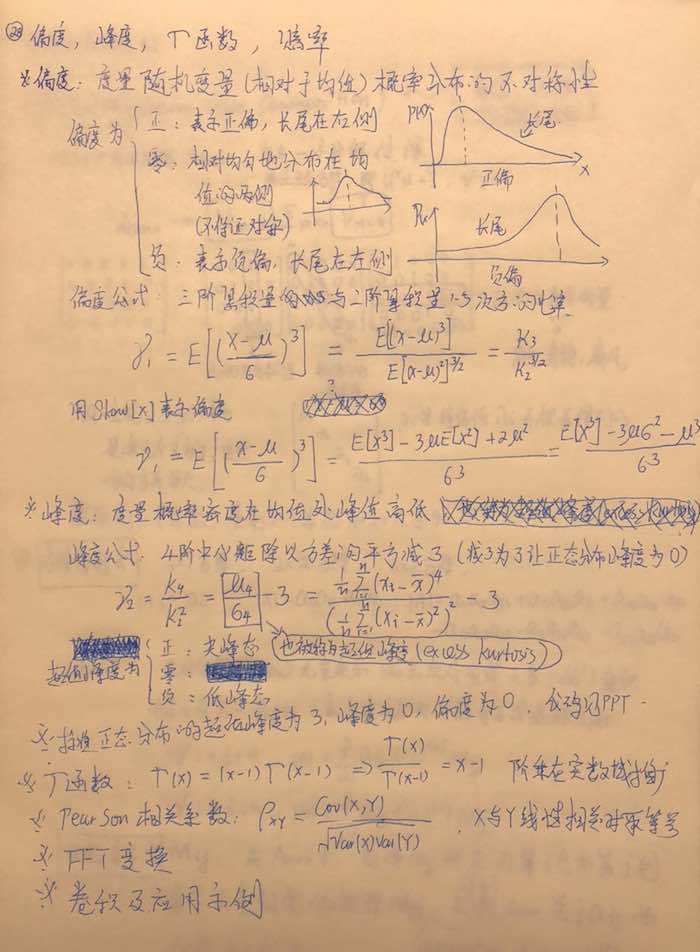 ㉘ 偏度，峰度，Γ函数，
※偏度：度量随机变量(相对于均值)概率分布的不对称性
偏度为
正：表示正偏，长尾在右侧
零：相对均匀地分布在均
值的两侧
(不保证对称)
负：表示负偏，长尾在左侧
p(x)
长尾
x
正偏
长尾
负偏
偏度公式：三阶累积量的与二阶累积量1.5次方的比率
γ₁ = E[((x-μ)/σ)³] = E[(x-μ)³] / E[(x-μ)²]^(3/2) = K₃ / K₂^(3/2)
用Skew[x]表示偏度
γ₁ = E[((x-μ)/σ)³] = (E[x³] - 3μE[x²] + 2μ²) / σ³ = (E[x³] - 3μσ² - μ³) / σ³
※峰度：度量概率密度在均值处峰值高低
峰度公式：4阶中心矩除以方差的平方减3 (减3为了让正态分布峰度为0)
γ₂ = K₄/K₂² = μ₄/σ⁴ - 3 = (1/n Σ(xᵢ-x̄)⁴) / (1/n Σ(xᵢ-x̄)²)² - 3
也被称为超值峰度(excess kurtosis)
超值峰度为
正：尖峰态
零：
负：低峰态
※标准正态分布的超值峰度为3，峰度为0，偏度为0，代码见PPT
※Γ函数：Γ(x)=(x-1)Γ(x-1) ⇒ Γ(x)/Γ(x-1) = x-1 阶乘在实数域推广
※Pearson相关系数：ρXY = Cov(X,Y) / √(Var(X)Var(Y)) ，X与Y线性相关时取等号
※FFT变换
※卷积及应用示例